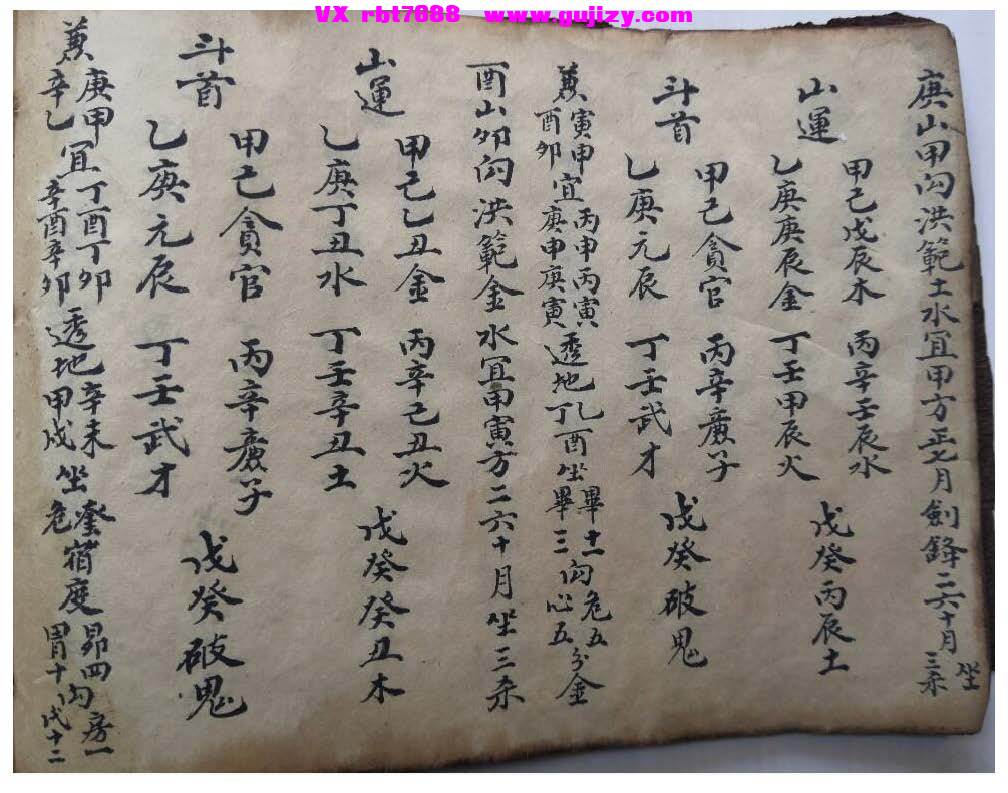 VX rbt7688 www.gujizy.com
庚山甲向洪範土水宜甲方正七月劍鋒二六十月坐三杀
山運
甲己戊辰木 丙辛壬辰水
乙庚庚辰金 丁壬甲辰火 戊癸丙辰土
斗首
甲己貪官 丙辛廉子
乙庚元辰 丁壬武才 戊癸破鬼
兼寅申酉卯宜丙申丙寅庚申庚寅透地酉坐畢十二畢三向危五心五分金
酉山卯向洪範金水宜甲寅方二六十月坐三杀
山運
甲己乙丑金 丙辛己丑火
乙庚丁丑水 丁壬辛丑土 戊癸癸丑木
斗首
甲己貪官 丙辛廉子
乙庚元辰 丁壬武才 戊癸破鬼
兼庚甲辛乙宜丁酉丁卯辛酉辛卯透地辛未甲戌坐奎危宿度昴四胃十向房一